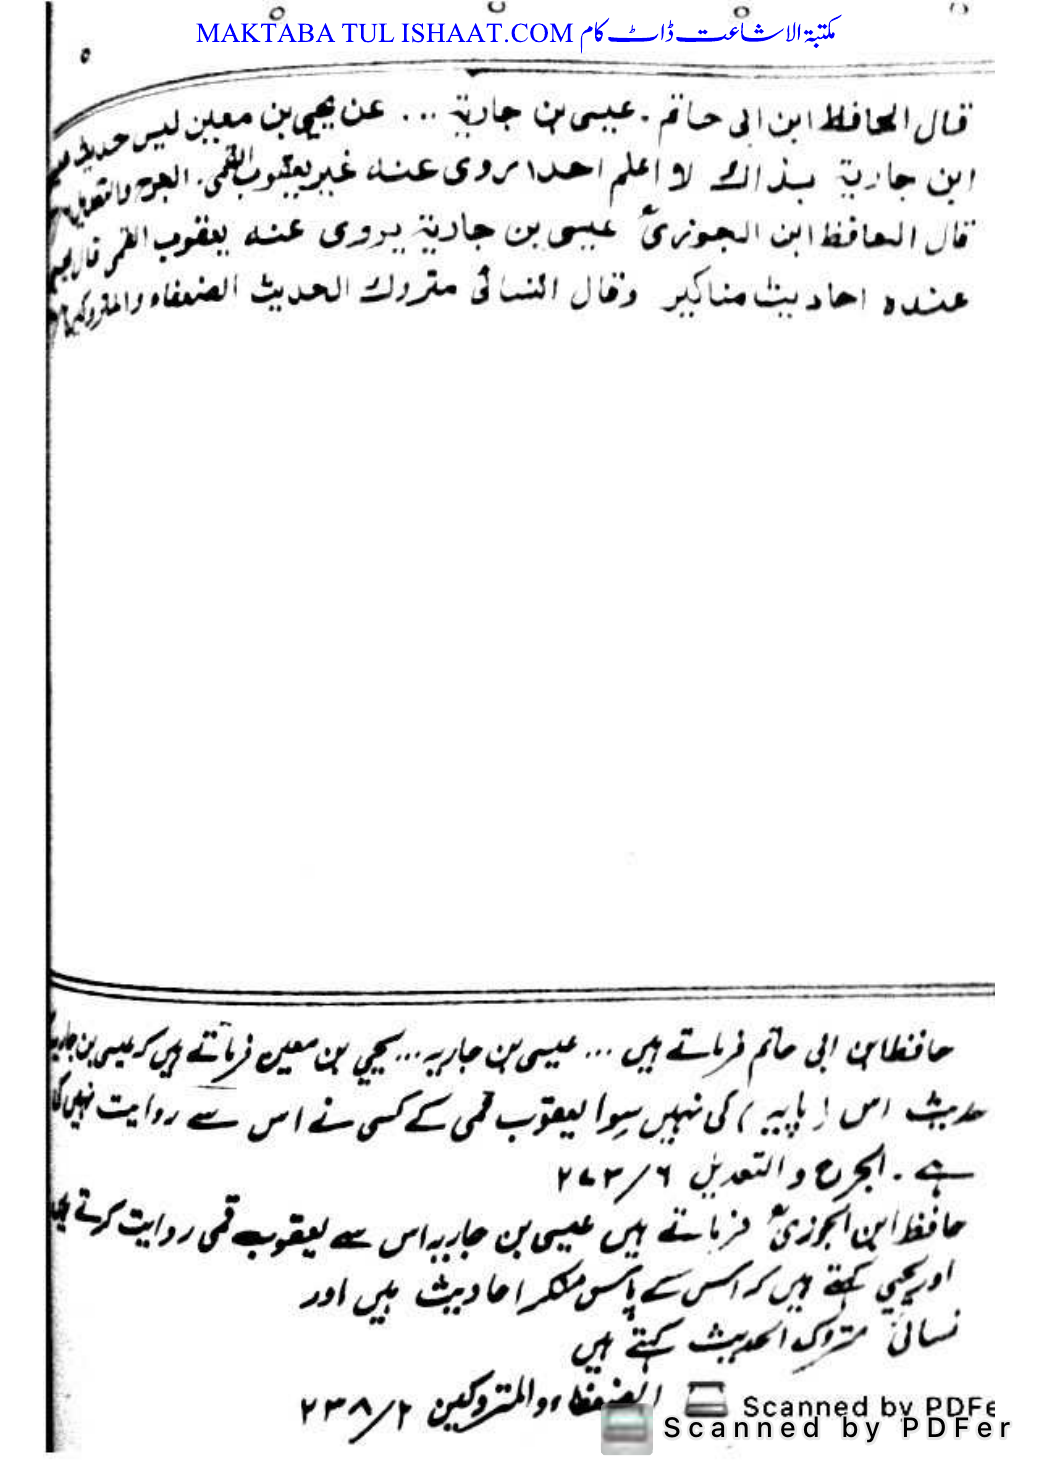 MAKTABA TUL ISHAAT.COM مکتبۃ الاشاعت ڈاٹ کام
٥
قال الحافظ ابن ابی حاتم . عیسی بن جاریۃ ... عن یحیی بن معین لیس حدیث
ابن جاریۃ بذاك لا اعلم احدا روی عنه غیر یعقوب القمی . الجرح والتعدیل
قال الحافظ ابن الجوزیؒ عیسی بن جاریۃ یروی عنه یعقوب القمی قال یحیی
عنده احادیث مناکیر وقال النسائی متروك الحدیث الضعفاء والمتروکین
حافظ ابن ابی حاتم فرماتے ہیں ... عیسی بن جاریہ ... یحیی بن معین فرماتے ہیں کہ عیسی بن جاریہ
حدیث اس (پایہ) کی نہیں سوا یعقوب قمی کے کسی نے اس سے روایت نہیں کیا
ہے . الجرح و التعدیل ٦/٢٧٣
حافظ ابن الجوزیؒ فرماتے ہیں عیسی بن جاریہ اس سے یعقوب قمی روایت کرتے ہیں
اور یحیی کہتے ہیں کہ اس کے پاس منکر احادیث ہیں اور
نسائی متروک الحدیث کہتے ہیں
الضعفاء والمتروکین ٢/٢٣٨
Scanned by PDFe
Scanned by PDFer